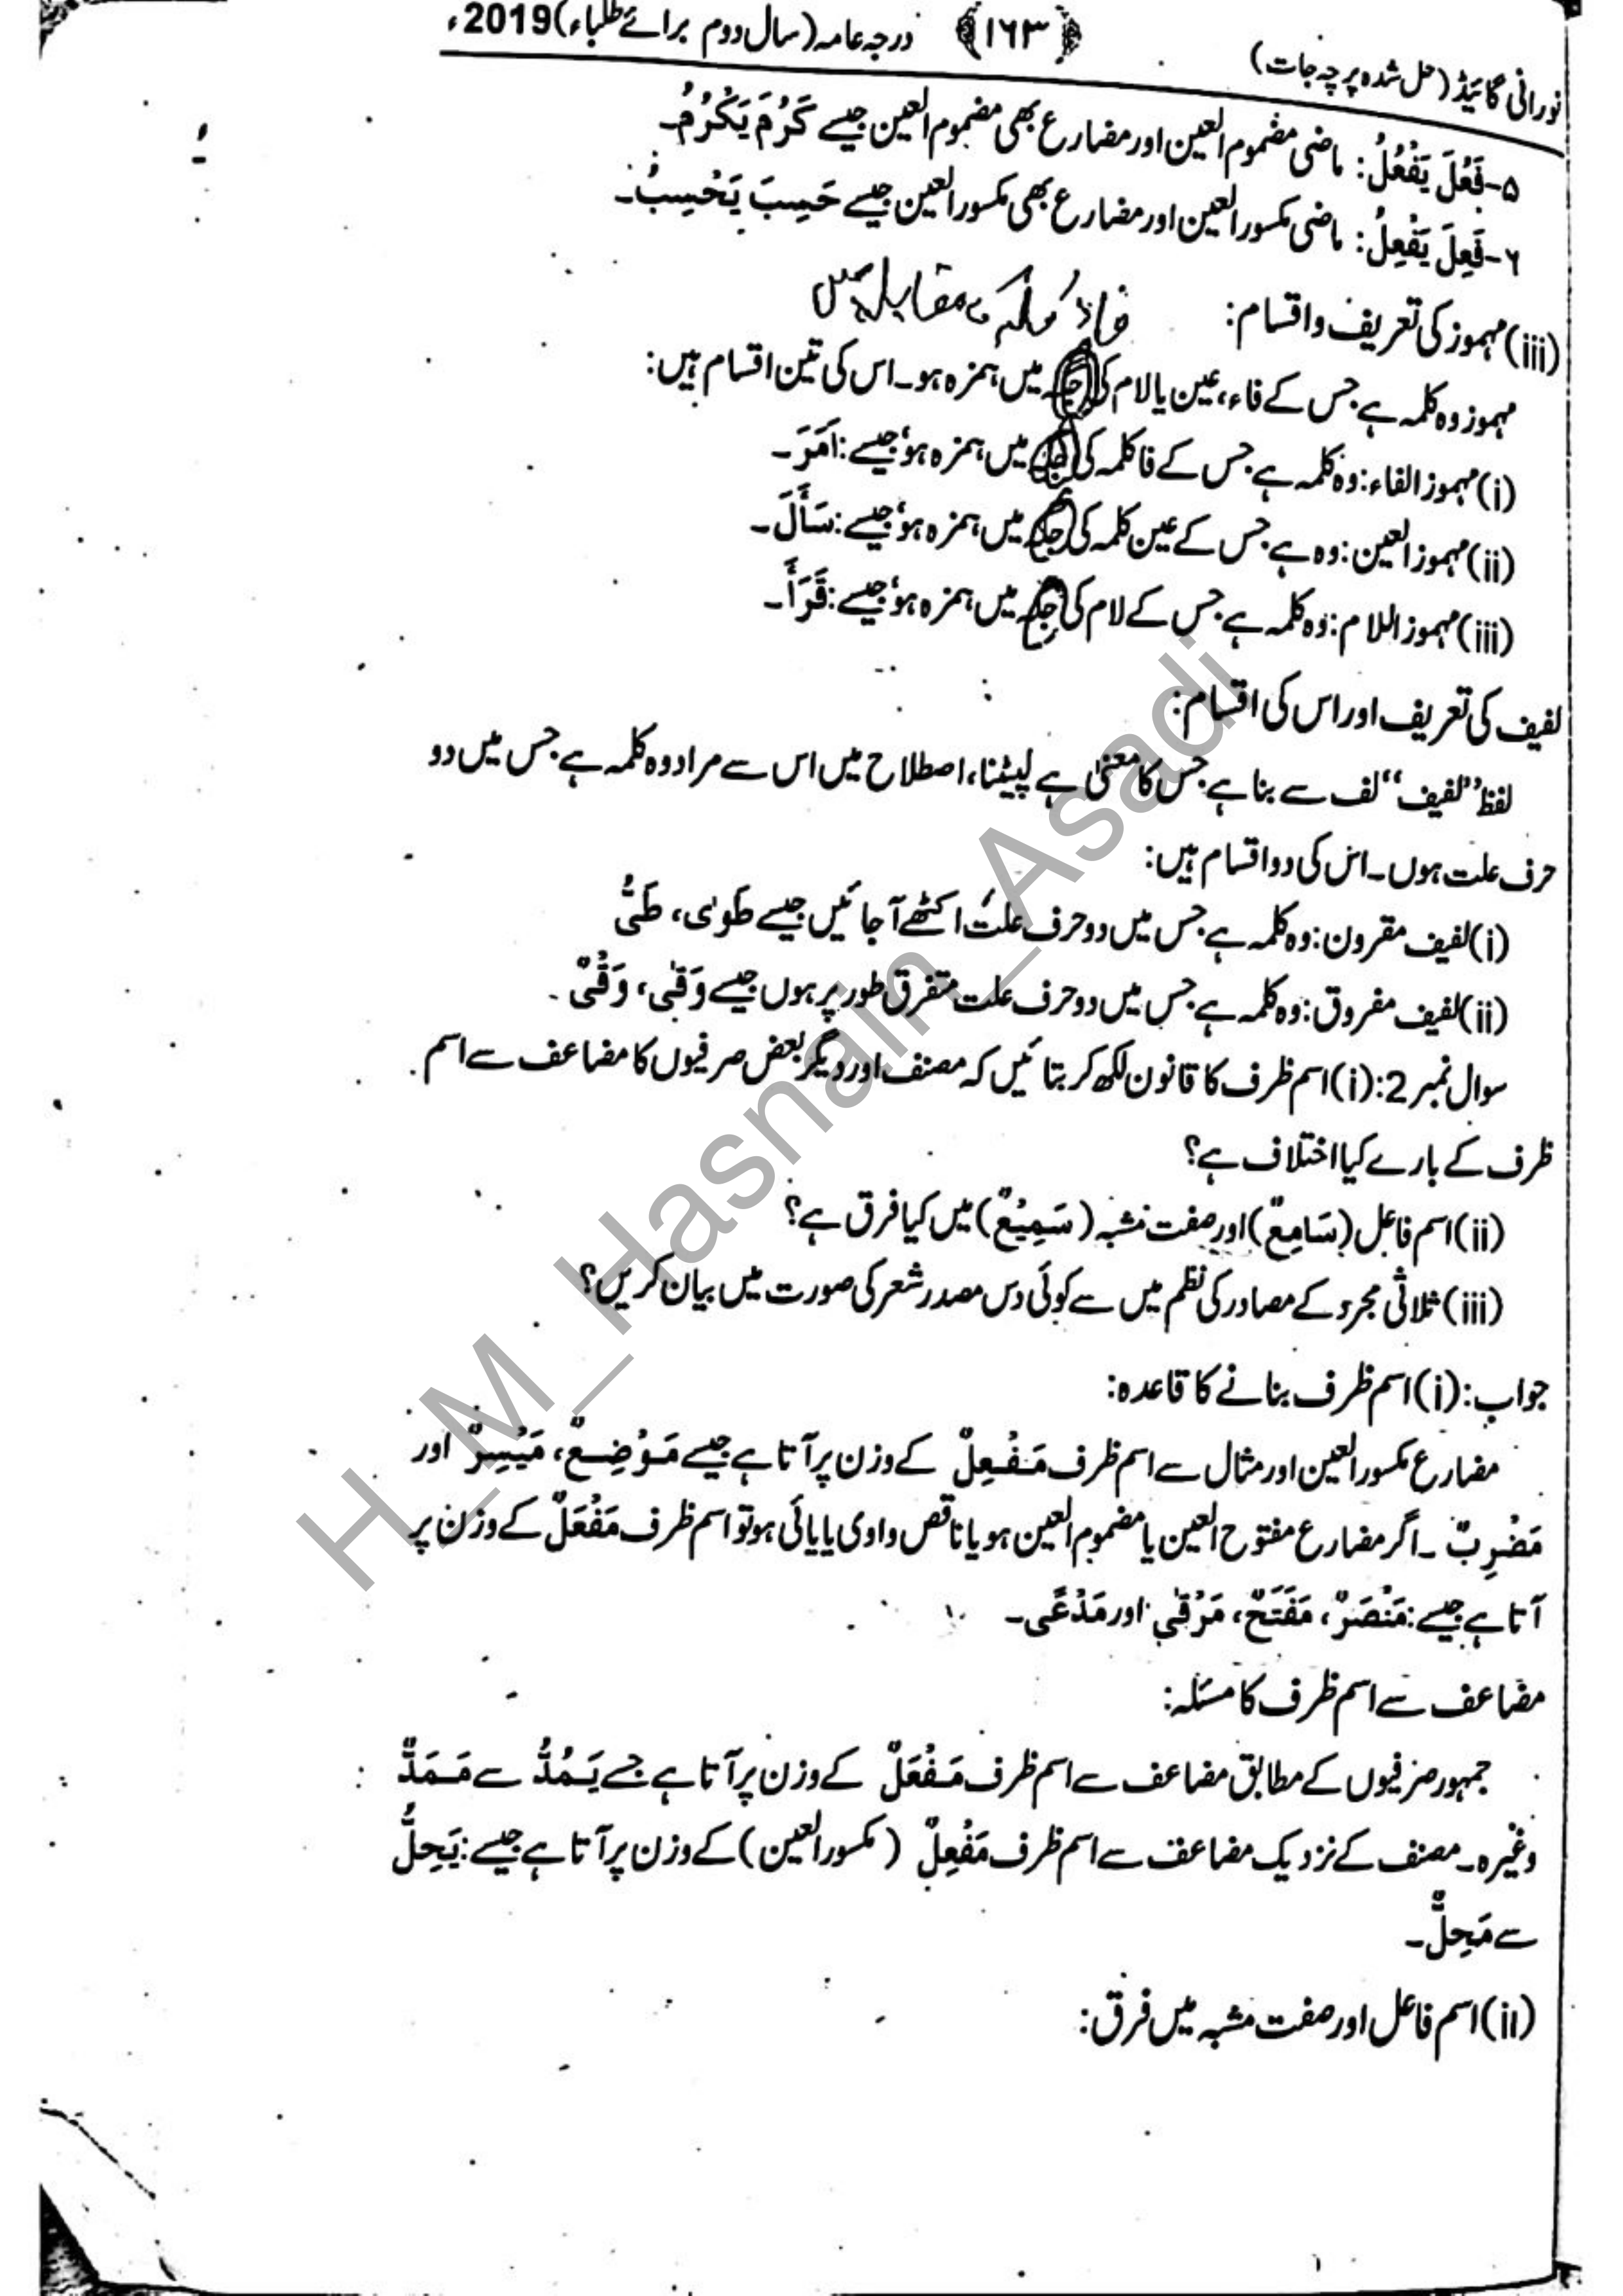 نورانی گائیڈ (حل شدہ پرچہ جات) ﴿۱۶۳﴾ درجہ عامہ (سال دوم برائے طلباء) 2019ء
۵-فَعُلَ يَفْعُلُ: ماضی مضموم العین اور مضارع بھی مضموم العین جیسے كَرُمَ يَكْرُمُ۔
۶-فَعِلَ يَفْعِلُ: ماضی مکسور العین اور مضارع بھی مکسور العین جیسے حَسِبَ يَحْسِبُ۔
(iii) مہموز کی تعریف و اقسام:
مقابلہ میں
مہموز وہ کلمہ ہے جس کے فاء، عین یا لام کی جگہ میں ہمزہ ہو۔ اس کی تین اقسام ہیں:
(i) مہموز الفاء: وہ کلمہ ہے جس کے فا کلمہ کی جگہ میں ہمزہ ہو، جیسے: اَمَرَ۔
(ii) مہموز العین: وہ ہے جس کے عین کلمہ کی جگہ میں ہمزہ ہو، جیسے: سَأَلَ۔
(iii) مہموز اللام: وہ کلمہ ہے جس کے لام کی جگہ میں ہمزہ ہو، جیسے: قَرَأَ۔
لفیف کی تعریف اور اس کی اقسام:
لفظ ”لفیف“ لف سے بنا ہے جس کا معنیٰ ہے لپیٹنا، اصطلاح میں اس سے مراد وہ کلمہ ہے جس میں دو
حرف علت ہوں۔ اس کی دو اقسام ہیں:
(i) لفیف مقرون: وہ کلمہ ہے جس میں دو حرف علت اکٹھے آ جائیں جیسے طَوٰى، طَىٌّ
(ii) لفیف مفروق: وہ کلمہ ہے جس میں دو حرف علت متفرق طور پر ہوں جیسے وَقٰى، وَقْىٌ۔
سوال نمبر 2: (i) اسم ظرف کا قانون لکھ کر بتائیں کہ مصنف اور دیگر بعض صرفیوں کا مضاعف سے اسم
ظرف کے بارے کیا اختلاف ہے؟
(ii) اسم فاعل (سَامِعٌ) اور صفت مشبہ (سَمِيْعٌ) میں کیا فرق ہے؟
(iii) ثلاثی مجرد کے مصادر کی نظم میں سے کوئی دس مصدر شعر کی صورت میں بیان کریں؟
جواب: (i) اسم ظرف بنانے کا قاعدہ:
مضارع مکسور العین اور مثال سے اسم ظرف مَفْعِلٌ کے وزن پر آتا ہے جیسے مَوْضِعٌ، مَيْسِرٌ اور
مَضْرِبٌ۔ اگر مضارع مفتوح العین یا مضموم العین ہو یا ناقص واوی یا یائی ہو تو اسم ظرف مَفْعَلٌ کے وزن پر
آتا ہے جیسے: مَنْصَرٌ، مَفْتَحٌ، مَرْقٰى اور مَدْعًى۔
مضاعف سے اسم ظرف کا مسئلہ:
جمہور صرفیوں کے مطابق مضاعف سے اسم ظرف مَفْعَلٌ کے وزن پر آتا ہے جے يَمُدُّ سے مَمَدٌّ
وغیرہ۔ مصنف کے نزدیک مضاعف سے اسم ظرف مَفْعِلٌ (مکسور العین) کے وزن پر آتا ہے جیسے: يَحِلُّ
سے مَحِلٌّ۔
(ii) اسم فاعل اور صفت مشبہ میں فرق:
H_M_Hasnain_Asadi